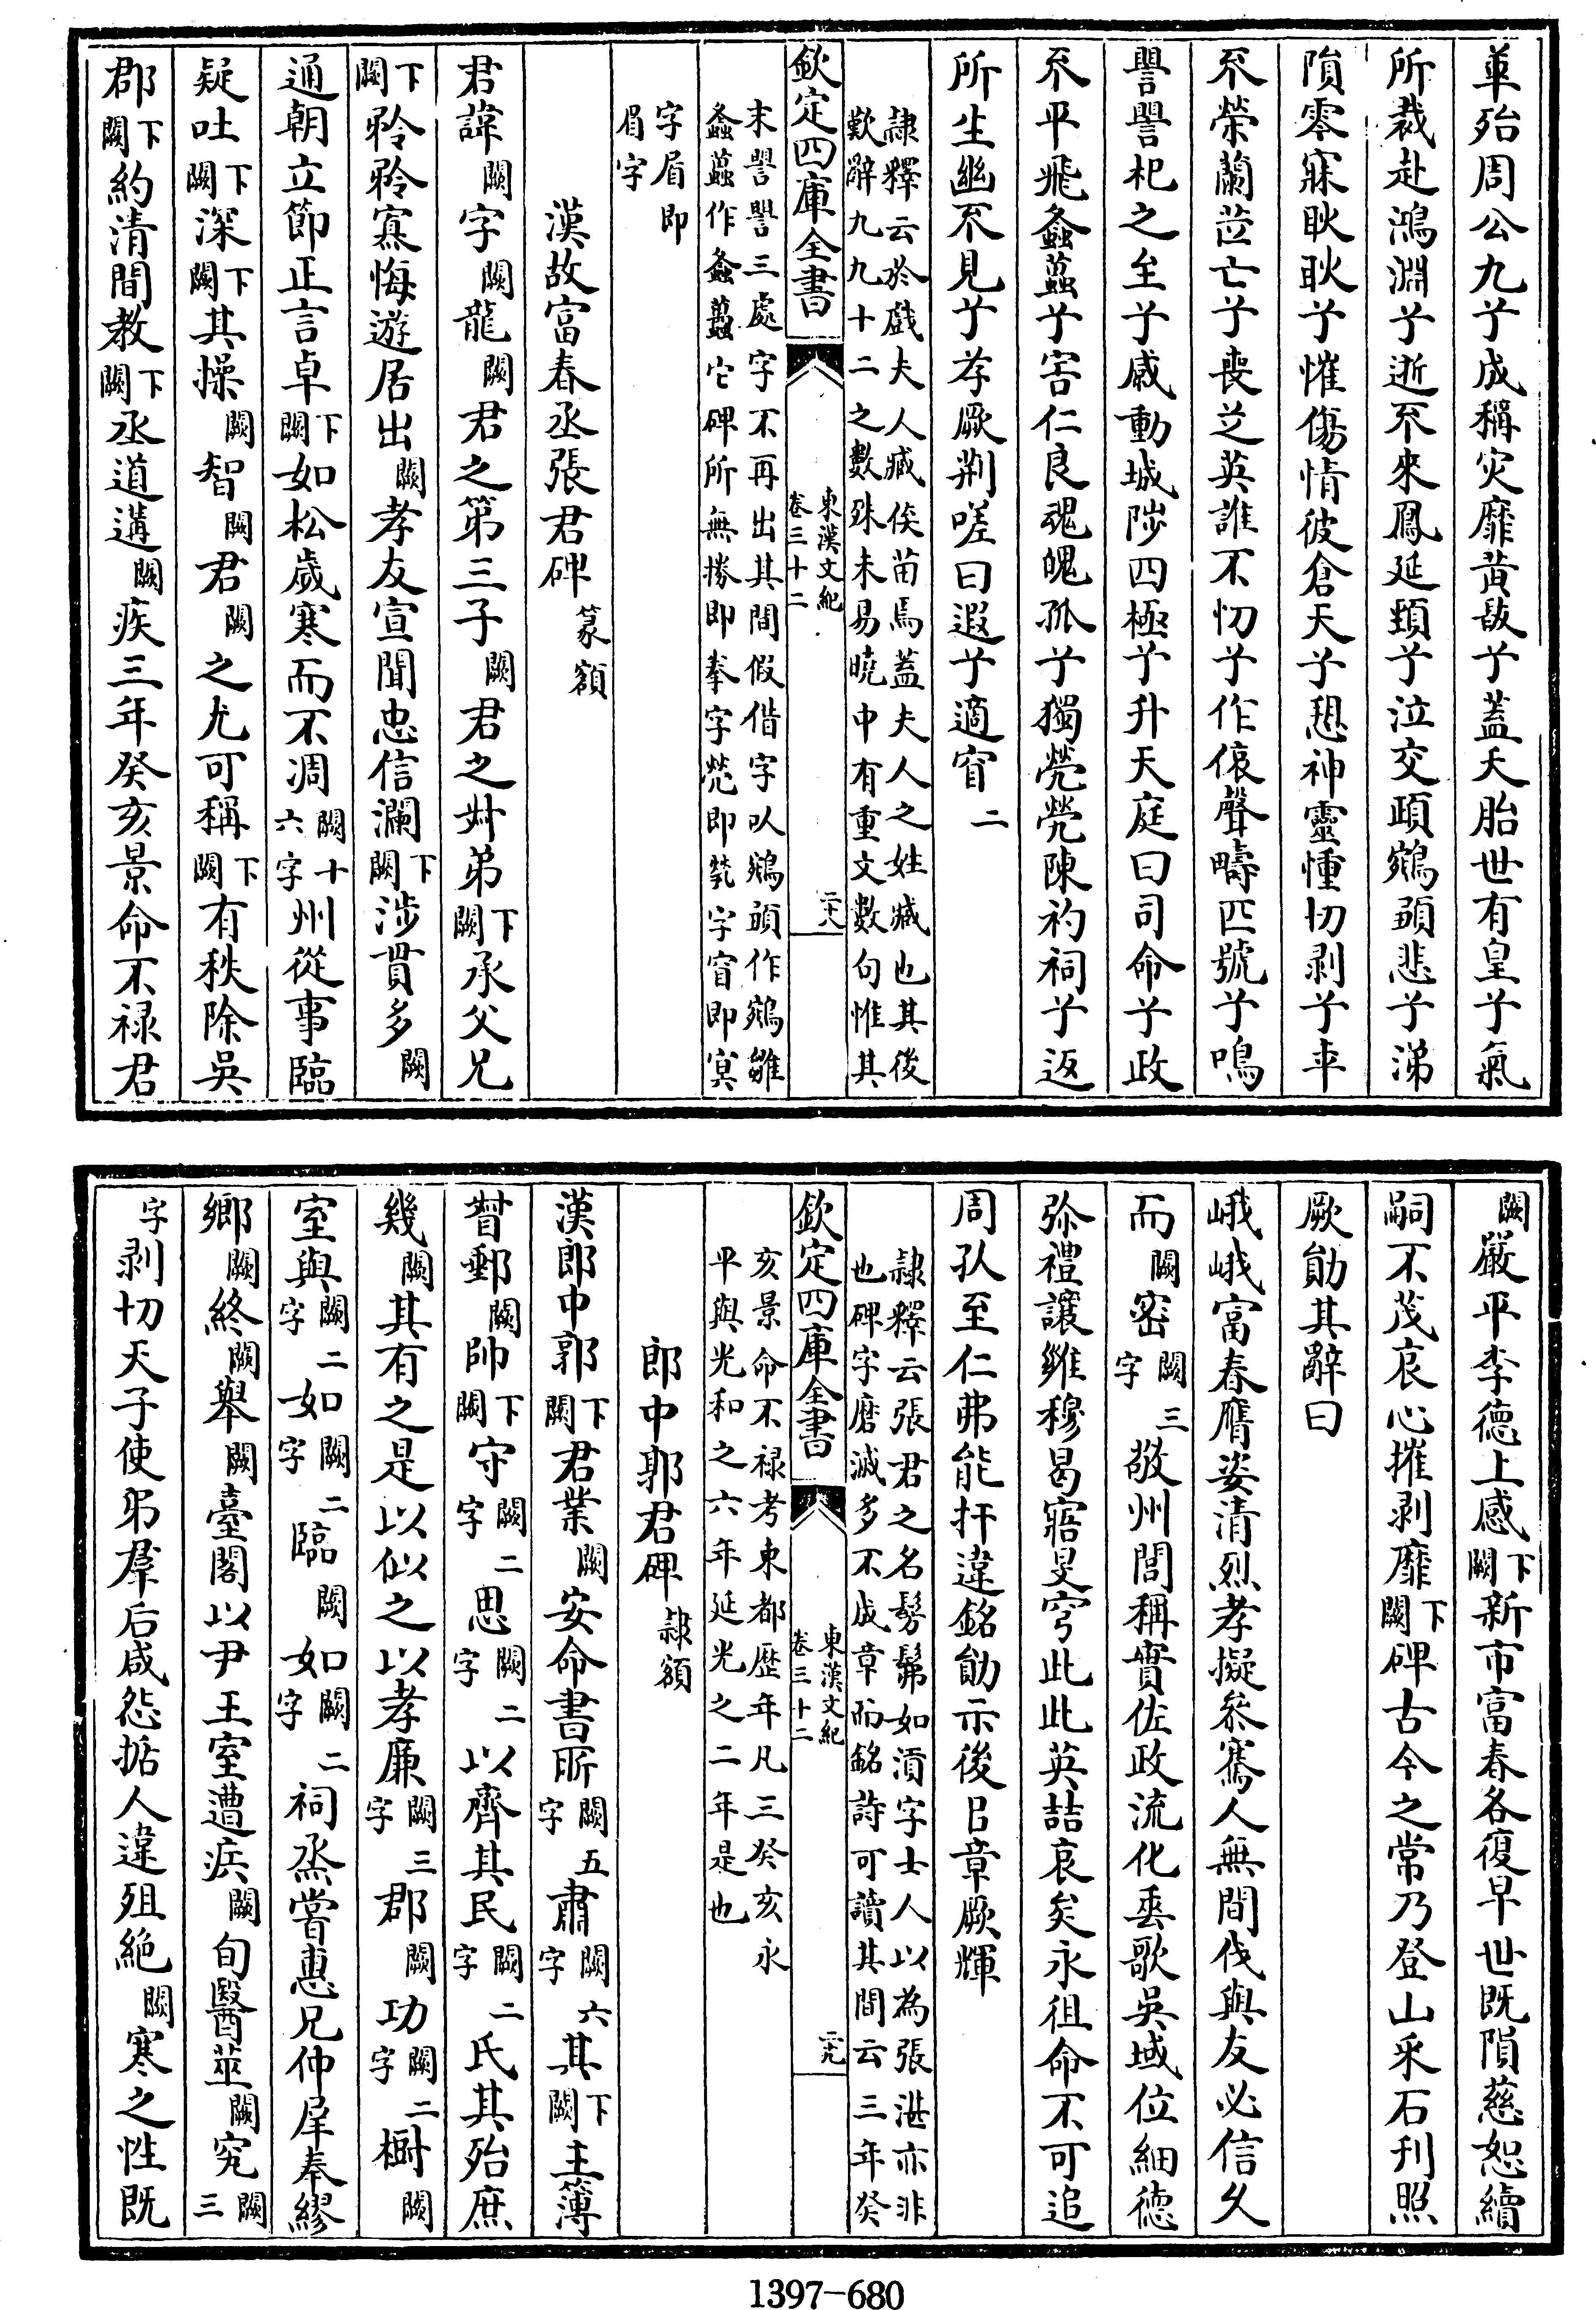 單殆周公九兮成稱灾靡黄㪇兮蓋夭胎世有皇兮氣
所裁赴鴻淵兮逝不來鳳延頸兮泣交頤鵷頭悲兮涕
隕零寐耿耿兮慛傷情彼倉天兮㤙神靈慟切剥兮年
不榮蘭茝亡兮喪芝英誰不忉兮作哀聲疇匹號兮鳴
譻譻杞之至兮感動城陟四極兮升天庭曰司命兮政
不平飛螽蠤兮害仁良魂魄孤兮獨煢煢陳礿祠兮返
所生幽不見兮存厥荆嗟曰遐兮適窅二
隷釋云於戲夫人臧俟苗焉蓋夫人之姓臧也其後
歎辭九九十二之數殊未易曉中有重文數句惟其
欽定四庫全書
東漢文紀
卷三十二
二十八
末譻譻三處字不再出其間假借字以鵷頭作鵷雛
螽蠤作螽蠤它碑所無搼即拳字焭即煢字窅即冥
字眉即
眉字
漢故富春丞張君碑篆額
君諱闕字闕龍闕君之第三子闕君之艸弟下闕承父兄
下闕矜矜寡悔遊居出闕孝友宣聞忠信瀾下闕涉貫多闕
通朝立節正言卓下闕如松歲寒而不凋闕十六字州從事臨
疑吐下闕深下闕其操闕智闕君闕之尤可稱下闕有秩除吳
郡下闕約清間教下闕丞道遘闕疾三年癸亥景命不禄君
闕嚴平李德上感下闕新市富春各復早世既隕慈恕續
嗣不茂哀心摧剥靡下闕碑古今之常乃登山采石刋照
厥勛其辭曰
峨峨富春膺姿清烈孝擬參騫人無間伐與友必信久
而闕密闕三字敬州閭稱實佐政流化垂歌吳域位細德
弥禮讓雖穆曷寤旻穹此此英喆哀矣永徂命不可追
周孔至仁弗能扞違銘勛示後㠯章厥輝
隷釋云張君之名髣髴如湏字士人以為張湛亦非
也碑字磨滅多不成章而銘詩可讀其間云三年癸
欽定四庫全書
東漢文紀
卷三十二
二十九
亥景命不禄考東都歷年凡三癸亥永
平與光和之六年延光之二年是也
郎中郭君碑隷額
漢郎中郭下闕君業闕安命書所闕五字肅闕六字其下闕主簿
督郵闕帥下闕守闕二字思闕二字以齊其民闕二字氏其殆庶
幾闕其有之是以似之以孝廉闕三字郡闕功闕二字樹闕
室與闕二字如闕二字臨闕如闕二字祠烝嘗惠兄仲犀奉繆
鄉闕終闕舉闕臺閣以尹王室遭疾闕旬醫莁闕究闕三
字剥切天子使弔羣后咸怨㧽人違殂絶闕寒之性既
1397-680